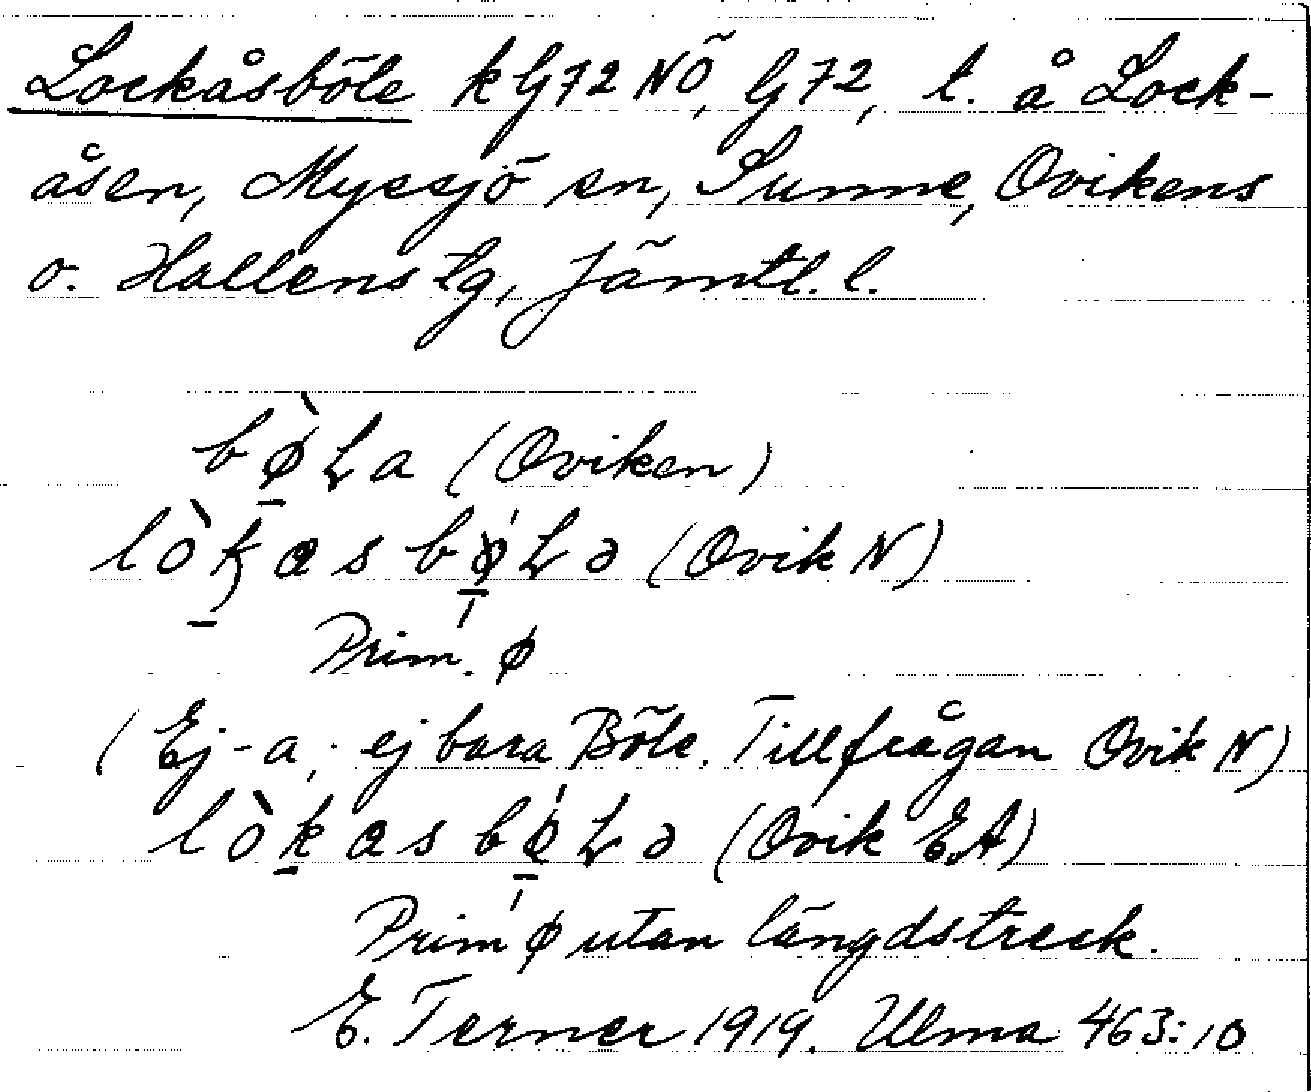 Lockåsböle k G72 NÖ, G72, t. å Lock-
åsen, Myssjö sn, Sunne, Ovikens
o. Hallens tg, Jämtl. l.
bø̀Ła (Oviken)
lòkasbøŁə (Ovik N)
Prim. ø
(Ej -a, ej bara Böle. Tillfrågan Ovik N)
lòkasbøŁə (Ovik E.A)
Prim ø utan längdstreck.
E. Terner 1919. Ulma 463:10